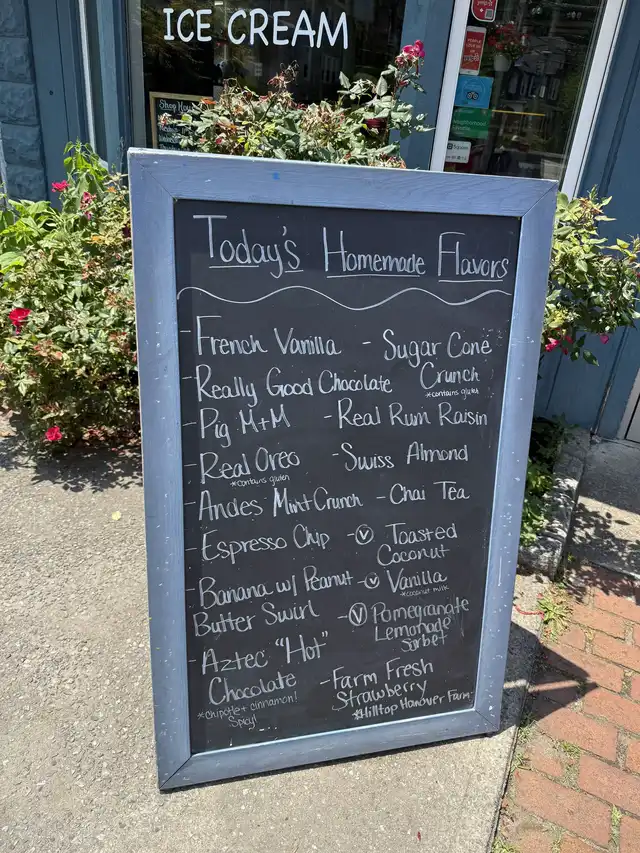 ICE CREAM
Shop Hou
Today's Homemade Flavors
- French Vanilla
- Really Good Chocolate
- Pig M+M
- Real Oreo
*contains gluten
- Andes Mint Crunch
- Espresso Chip
- Banana w/ Peanut
Butter Swirl
- Aztec "Hot"
Chocolate
*chipotle + cinnamon!
Spicy!
- Sugar Cone
Crunch
*contains gluten
- Real Rum Raisin
- Swiss Almond
- Chai Tea
- Ⓥ Toasted
Coconut
- Ⓥ Vanilla
*coconut milk
- Ⓥ Pomegranate
Lemonade
Sorbet
- Farm Fresh
Strawberry
*Hilltop Hanover Farm
Square